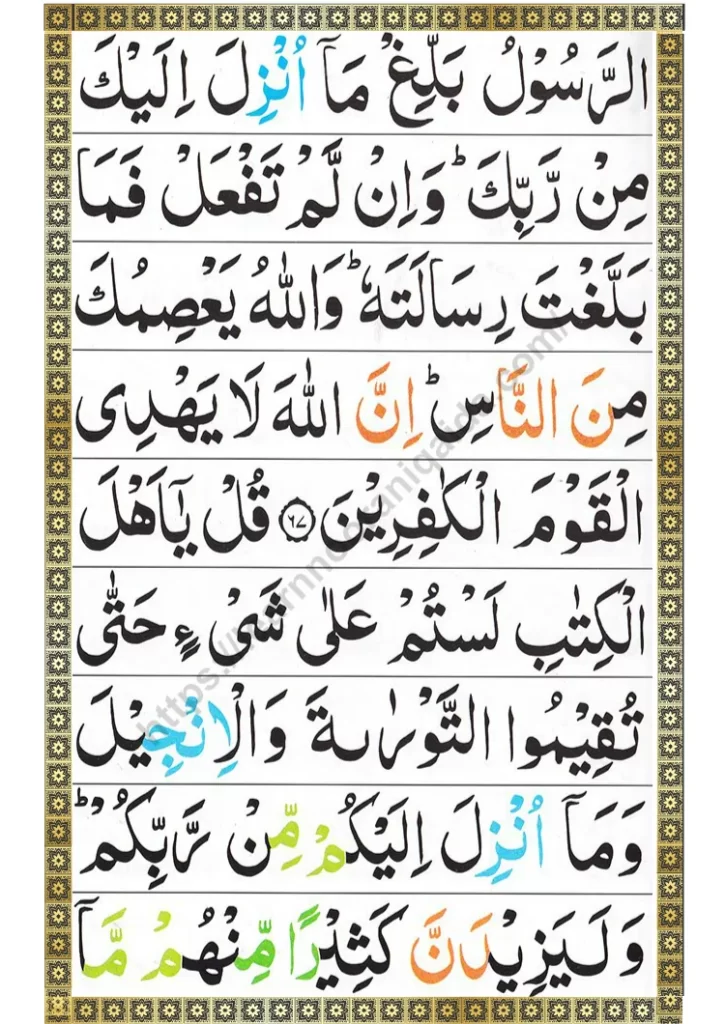 الرَّسُوْلُ بَلِّغْ مَاۤ اُنْزِلَ اِلَيْكَ
مِنْ رَّبِّكَ ؕ وَاِنْ لَّمْ تَفْعَلْ فَمَا
بَلَّغْتَ رِسَالَتَهٗ ؕ وَاللّٰهُ يَعْصِمُكَ
مِنَ النَّاسِ ؕ اِنَّ اللّٰهَ لَا يَهْدِى
الْقَوْمَ الْكٰفِرِيْنَ ﴿۶۷﴾ قُلْ يٰۤاَهْلَ
الْكِتٰبِ لَسْتُمْ عَلٰى شَىْءٍ حَتّٰى
تُقِيْمُوا التَّوْرٰٮةَ وَالْاِنْجِيْلَ
وَمَاۤ اُنْزِلَ اِلَيْكُمْ مِّنْ رَّبِّكُمْ ؕ
وَلَيَزِيْدَنَّ كَثِيْرًا مِّنْهُمْ مَّاۤ